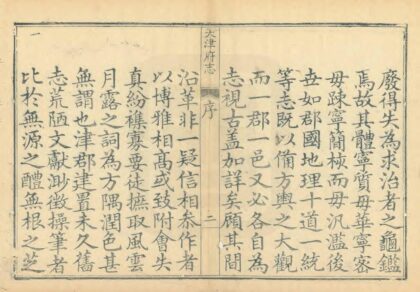 廢得失為求治者之龜鑑
焉故其體寧質毋華寧審
毋踈寧簡核而毋汎濫後
世如郡國地理十道一統
等志既以備方輿之大觀
而一郡一邑又必各自為
志視古蓋加詳矣顧其間
天津府志
序
二
沿革非一疑信相參作者
以博雅相高或致附會失
真紛穰寡要徒摭取風雲
月露之詞為方隅潤色甚
無謂也津郡建置未久舊
志荒陋文獻渺徵操筆者
比於無源之醴無根之芝